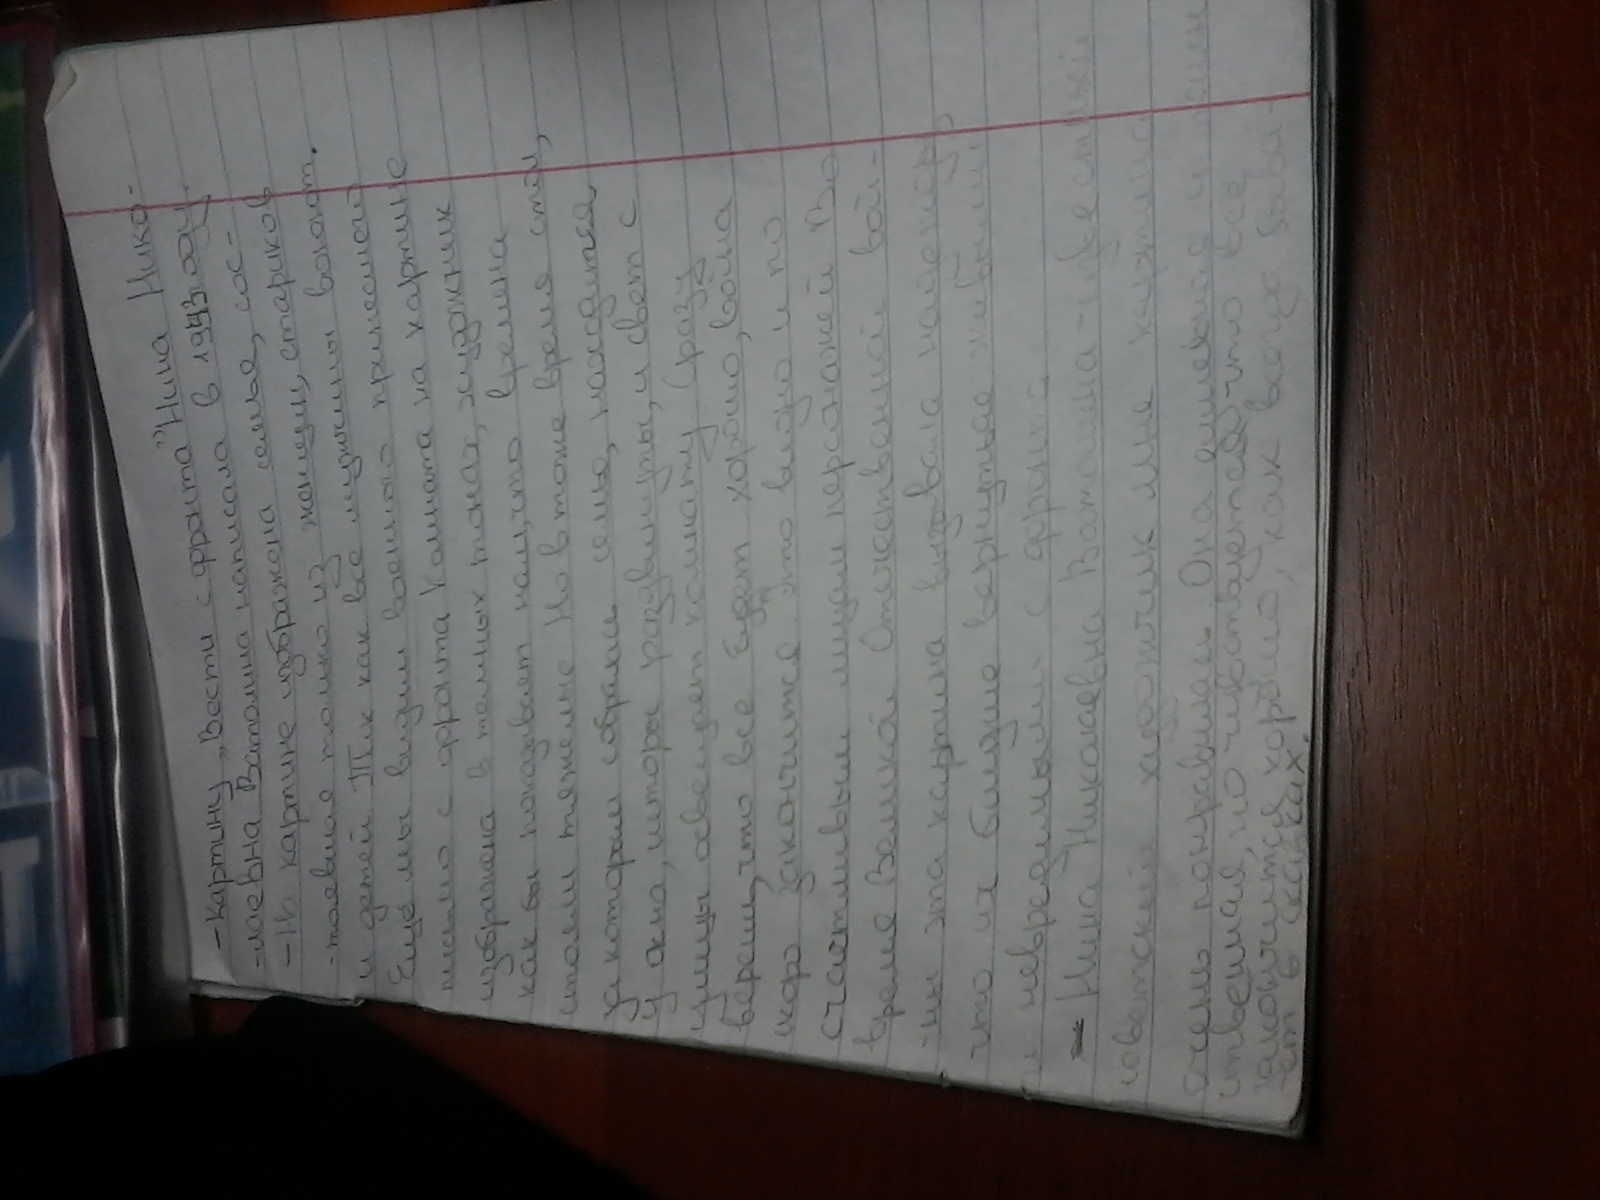 - Картину „Вести с фронта" Нина Нико-
-лаевна Ватолина написала в 1943 году.
- На картине изображена семья, сос-
-тоевшая только из женщин, стариков
и детей Так как все мущины воюют.
Ещё мы видим военного принесшего
письмо с фронта Комната на картине
изображена в темных тонах, художник
как бы показывает нам, что времена
стоят тяжелые Но в тоже время стол,
за которым собралась семья, находится
у окна, шторы раздвинуты, и свет с
улицы освещает комнату Сразу
веришь, что все будет хорошо, война
скоро закончится это видно и по
счастливым лицам персонажей Во
время Великой Отечественной вой-
-ны эта картина внушала надежду,
что их близкие вернутые живыми
и невредимыми с фронта
- Нина Николаевна Ватолина - известный
советский художник мне картина
очень понравилась. Она
но чувствуется что всё
закончится хорошо, как всегда быва-
-ет в сказках.